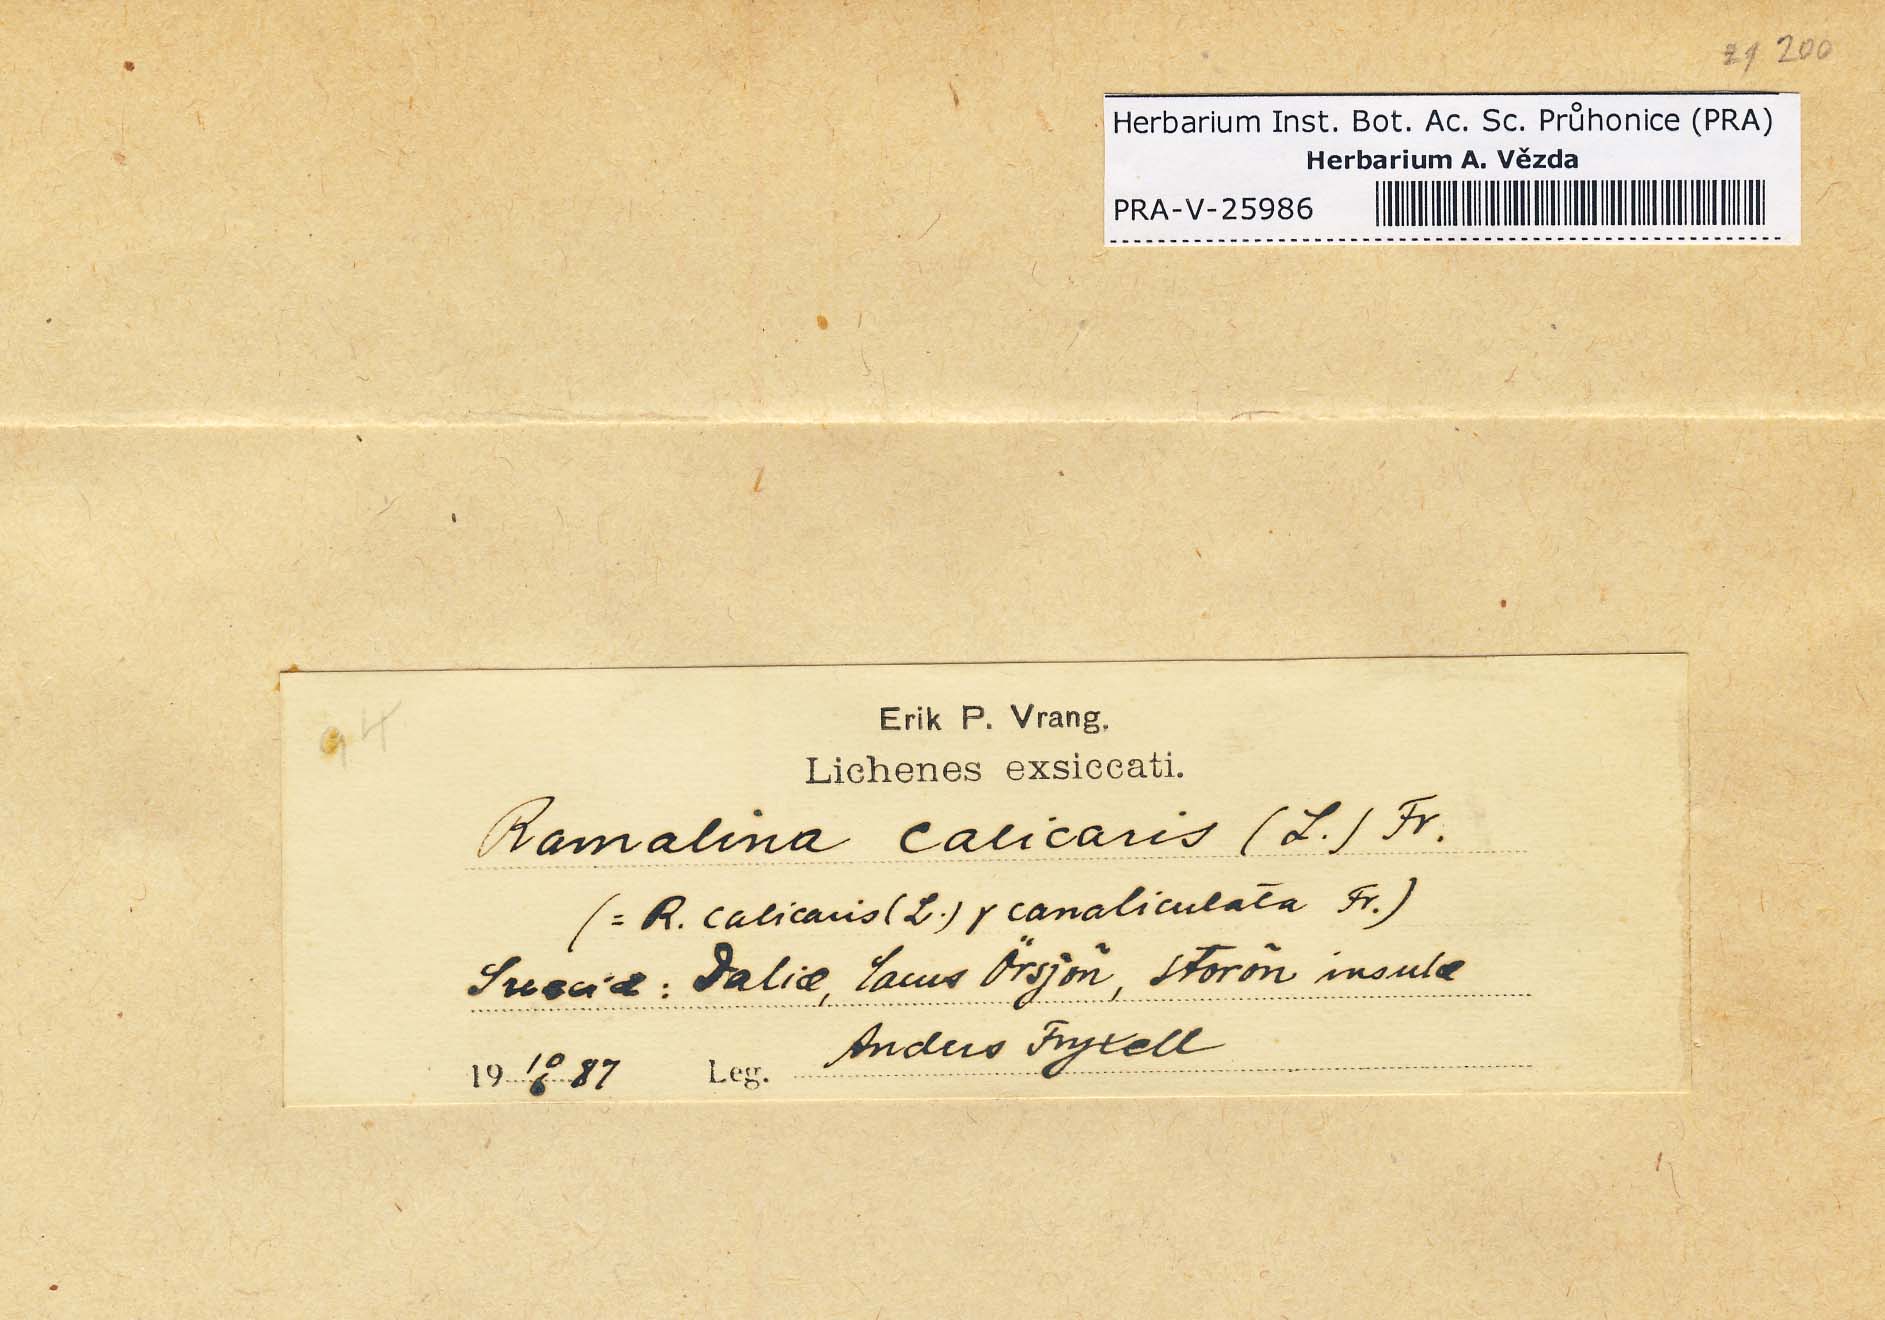 200
Herbarium Inst. Bot. Ac. Sc. Průhonice (PRA)
Herbarium A. Vězda
PRA-V-25986
94
Erik P. Vrang.
Lichenes exsiccati.
Ramalina calicaris (L.) Fr.
(= R. calicaris (L.) γ canaliculata Fr.)
Sueciæ: Daliæ, lacus Örsjön, Storön insula
19 10/6 87 Leg. Anders Fryxell